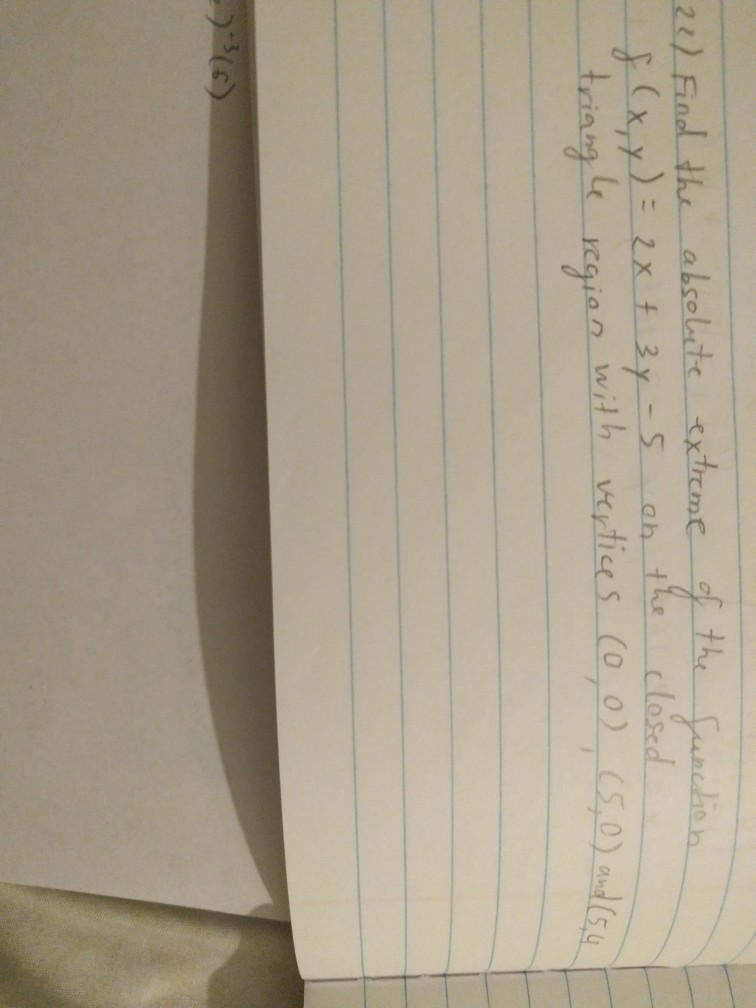 22) Find the absolute extreme of the function
f(x,y) = 2x + 3y - 5 on the closed
triangle region with vertices (0,0), (5,0) and (5,4
)⁻³(6)